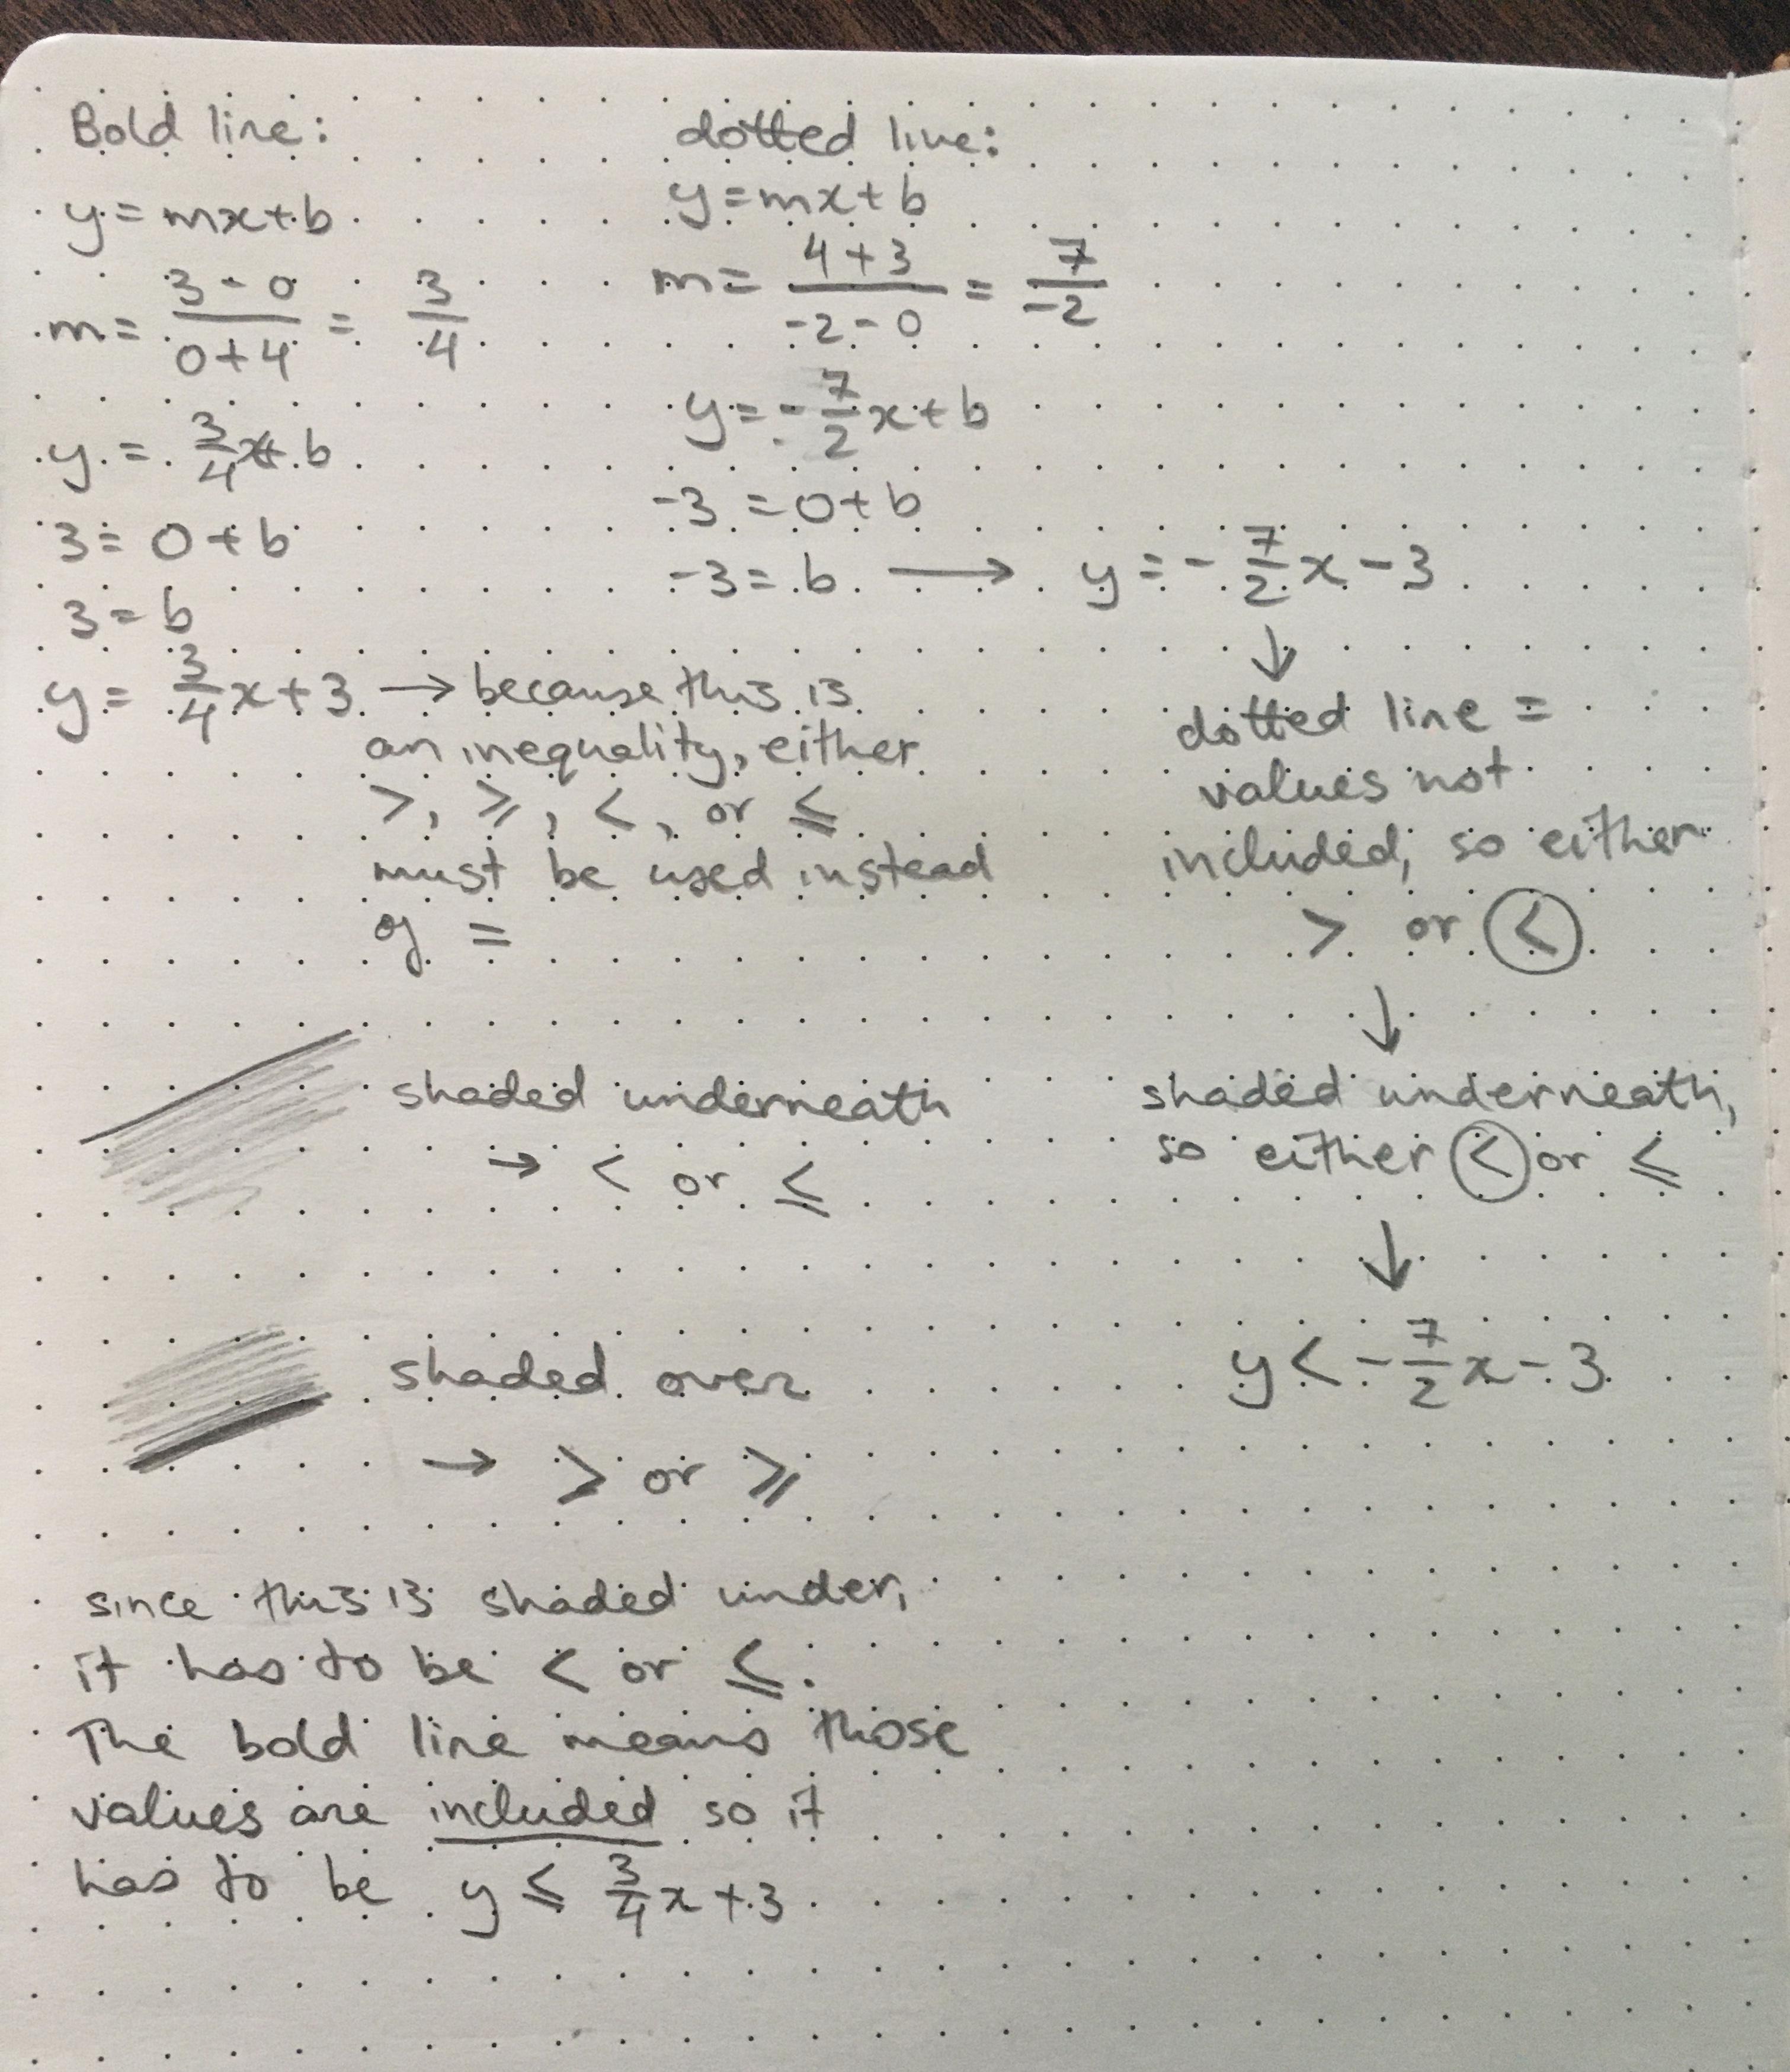 Bold line:
y = mx + b
m = (3 - 0)/(0 + 4) = 3/4
y = 3/4 x + b
3 = 0 + b
3 = b
y = 3/4 x + 3 → because this is
an inequality, either
>, ≥, <, or ≤
must be used instead
of =
shaded underneath
→ < or ≤
shaded over
→ > or ≥
since this is shaded under,
it has to be < or ≤.
The bold line means those
values are included so it
has to be y ≤ 3/4 x + 3
dotted line:
y = mx + b
m = (4 + 3)/(-2 - 0) = 7/-2
y = -7/2 x + b
-3 = 0 + b
-3 = b → y = -7/2 x - 3
↓
dotted line =
values not
included, so either
> or <
↓
shaded underneath,
so either < or ≤
↓
y < -7/2 x - 3